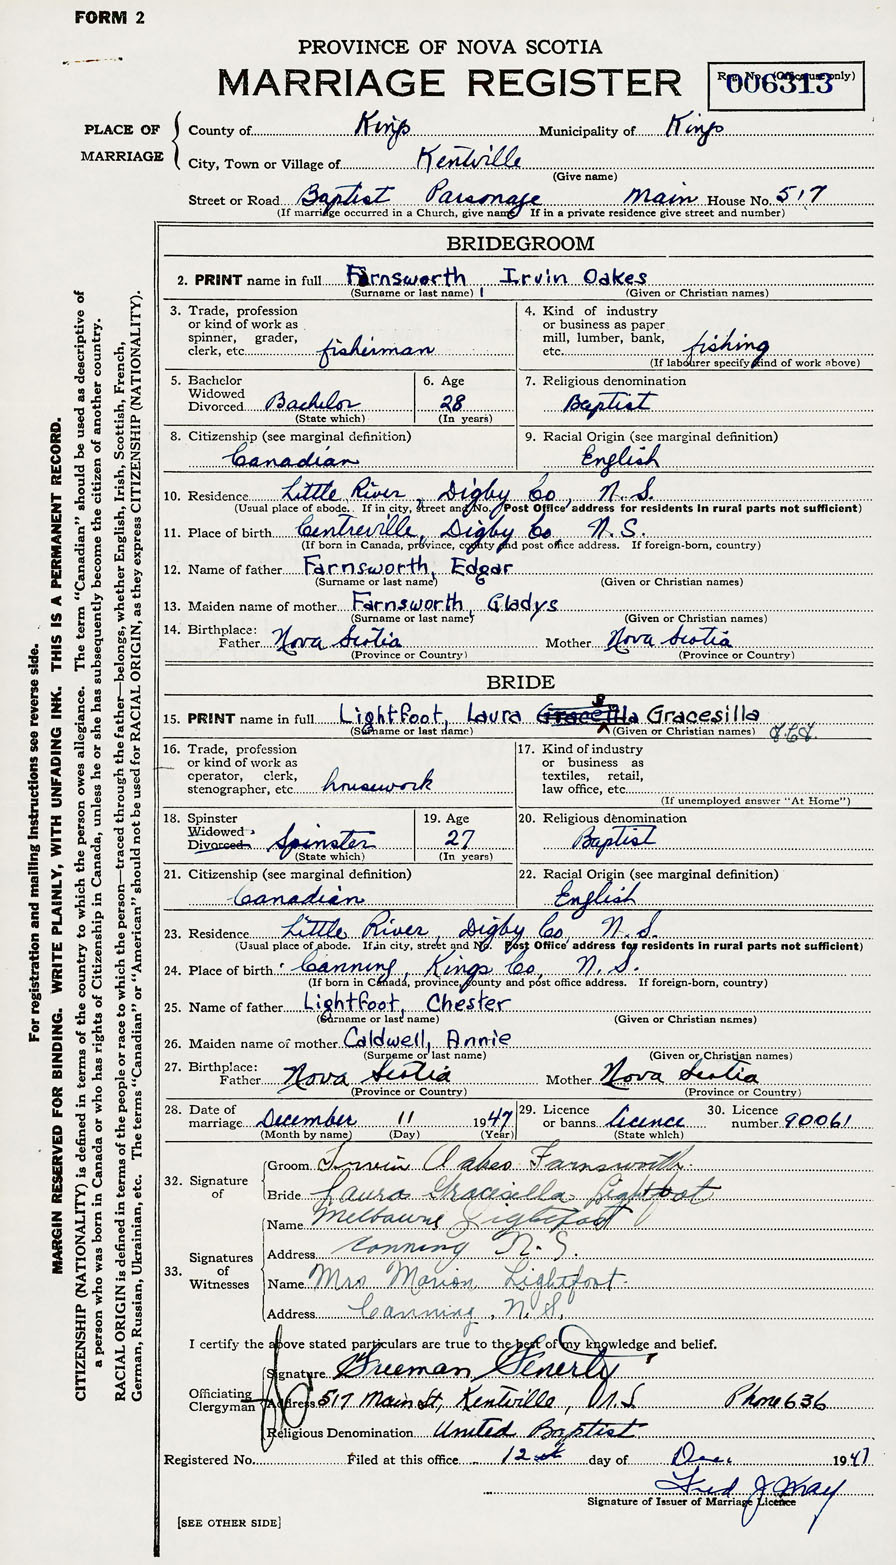 FORM 2
PROVINCE OF NOVA SCOTIA
MARRIAGE REGISTER
Reg. No. (Office use only)
006313
PLACE OF MARRIAGE
County of Kings Municipality of Kings
City, Town or Village of Kentville
(Give name)
Street or Road Baptist Parsonage Main House No. 517
(If marriage occurred in a Church, give name. If in a private residence give street and number)
BRIDEGROOM
2. PRINT name in full Farnsworth Irvin Oakes
(Surname or last name) (Given or Christian names)
3. Trade, profession or kind of work as spinner, grader, clerk, etc. fisherman
4. Kind of industry or business as paper mill, lumber, bank, etc. fishing
(If labourer specify kind of work above)
5. Bachelor Widowed Divorced Bachelor
(State which)
6. Age 28
(In years)
7. Religious denomination
Baptist
8. Citizenship (see marginal definition)
Canadian
9. Racial Origin (see marginal definition)
English
10. Residence Little River, Digby Co, N.S.
(Usual place of abode. If in city, street and No. Post Office address for residents in rural parts not sufficient)
11. Place of birth Centreville, Digby Co N.S.
(If born in Canada, province, county and post office address. If foreign-born, country)
12. Name of father Farnsworth, Edgar
(Surname or last name) (Given or Christian names)
13. Maiden name of mother Farnsworth, Gladys
(Surname or last name) (Given or Christian names)
14. Birthplace:
Father Nova Scotia Mother Nova Scotia
(Province or Country) (Province or Country)
BRIDE
15. PRINT name in full Lightfoot, Laura Gracesilla
(Surname or last name) (Given or Christian names)
16. Trade, profession or kind of work as operator, clerk, stenographer, etc. housework
17. Kind of industry or business as textiles, retail, law office, etc.
(If unemployed answer "At Home")
18. Spinster Widowed Divorced Spinster
(State which)
19. Age 27
(In years)
20. Religious denomination
Baptist
21. Citizenship (see marginal definition)
Canadian
22. Racial Origin (see marginal definition)
English
23. Residence Little River, Digby Co, N.S.
(Usual place of abode. If in city, street and No. Post Office address for residents in rural parts not sufficient)
24. Place of birth Canning, Kings Co, N.S.
(If born in Canada, province, county and post office address. If foreign-born, country)
25. Name of father Lightfoot, Chester
(Surname or last name) (Given or Christian names)
26. Maiden name of mother Caldwell, Annie
(Surname or last name) (Given or Christian names)
27. Birthplace:
Father Nova Scotia Mother Nova Scotia
(Province or Country) (Province or Country)
28. Date of marriage December 11 1947
(Month by name) (Day) (Year)
29. Licence or banns licence
(State which)
30. Licence number 90061
32. Signature of
Groom Irvin Oakes Farnsworth
Bride Laura Gracesilla Lightfoot
33. Signatures of Witnesses
Name Melbourne Lightfoot
Address Canning N.S.
Name Mrs Marion Lightfoot
Address Canning, N.S.
I certify the above stated particulars are true to the best of my knowledge and belief.
Officiating Clergyman
Signature Freeman Fenerty
Address 517 Main St, Kentville, N.S Phone 636
Religious Denomination United Baptist
Registered No. Filed at this office 12 day of Dec. 1947
Fred J Way
Signature of Issuer of Marriage Licence
[SEE OTHER SIDE]
For registration and mailing instructions see reverse side.
MARGIN RESERVED FOR BINDING. WRITE PLAINLY, WITH UNFADING INK. THIS IS A PERMANENT RECORD.
CITIZENSHIP (NATIONALITY) is defined in terms of the country to which the person owes allegiance. The term "Canadian" should be used as descriptive of
a person who was born in Canada or who has rights of Citizenship in Canada, unless he or she has subsequently become the citizen of another country.
RACIAL ORIGIN is defined in terms of the people or race to which the person—traced through the father—belongs, whether English, Irish, Scottish, French,
German, Russian, Ukrainian, etc. The terms "Canadian" or "American" should not be used for RACIAL ORIGIN, as they express CITIZENSHIP (NATIONALITY).